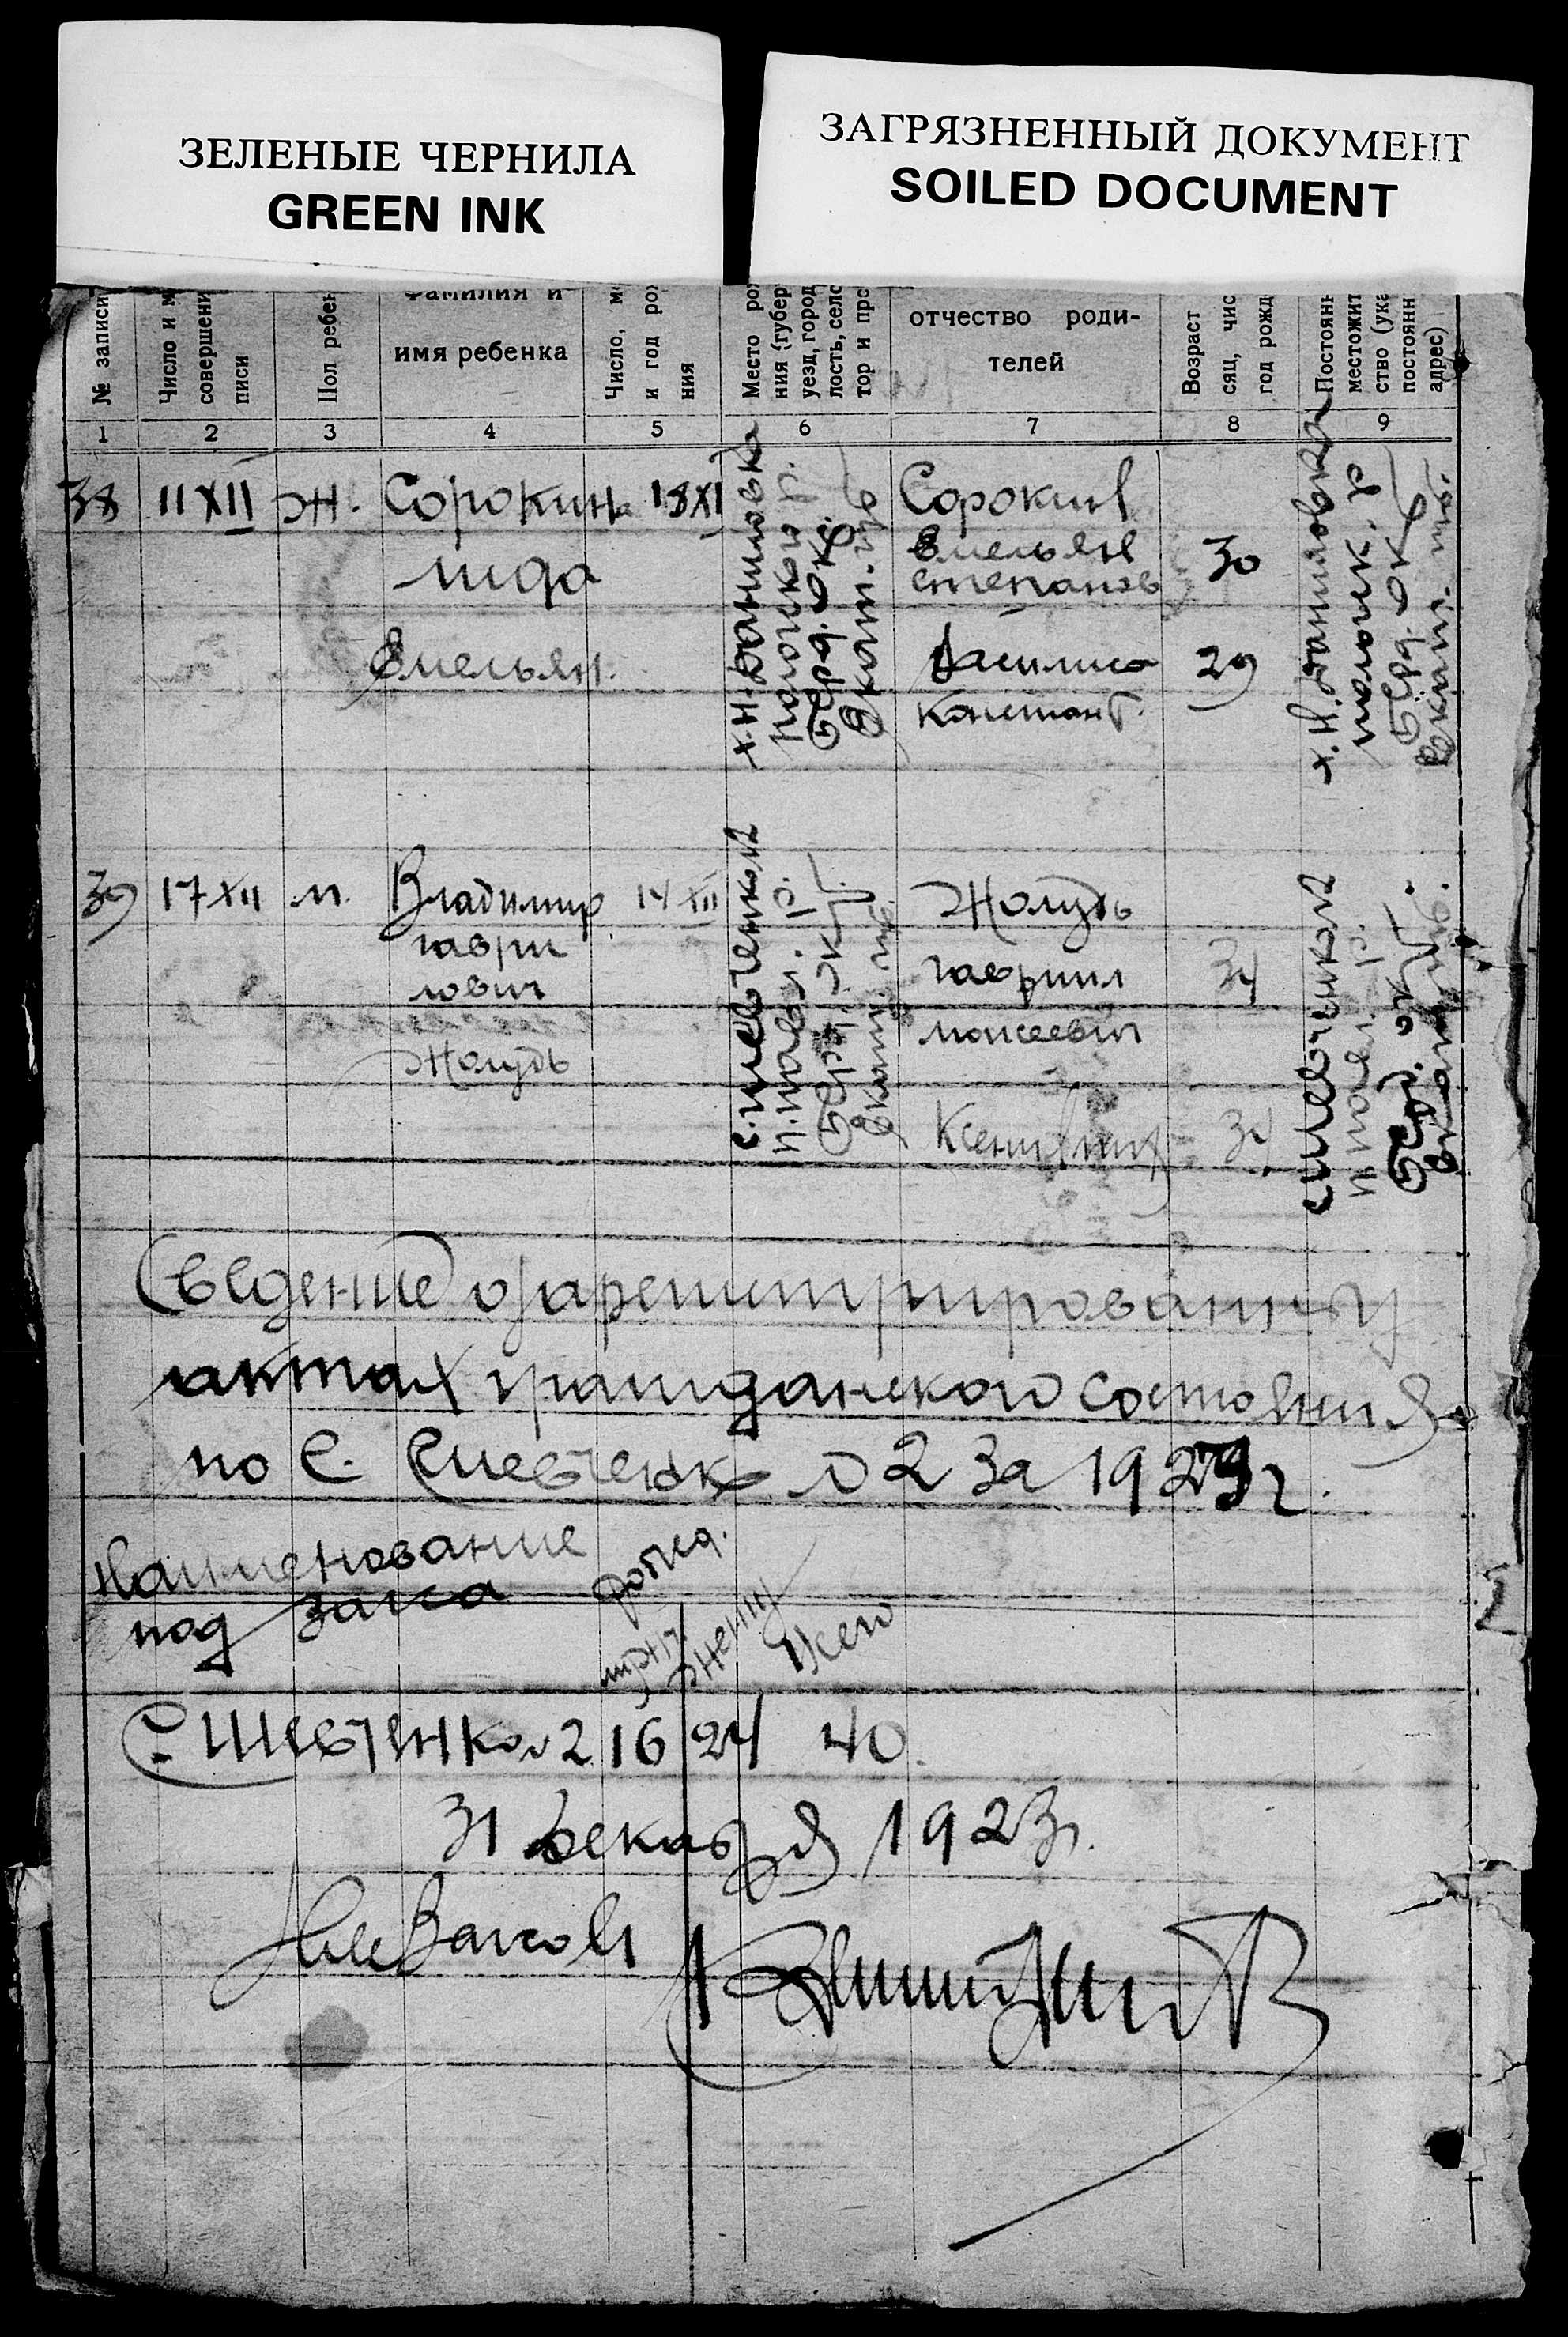 ЗЕЛЕНЫЕ ЧЕРНИЛА
GREEN INK
ЗАГРЯЗНЕННЫЙ ДОКУМЕНТ
SOILED DOCUMENT
№ записи
Число и м
совершени
писи
Пол ребен
Фамилия и
имя ребенка
Число, м
и год рож
ния
Место рож
ния (губер
уезд, город
лость, село
тор и пр
отчество роди-
телей
Возраст
сяц, чис
год рожд
Постоянн
местожит
ство (ука
постоянн
адрес)
1 2 3 4 5 6 7 8 9
38 11 XII Ж. Сорокина 18 XI
Лида
Емельян.
х. Н-Даниловка
Пологского р.
Берд. Ок.
Екат. губ
Сорокин
Емельян
Степанов 30
Василиса 29
Констант.
х. Н. Даниловка
Пологск. р
Берд. Ок
Екат. губ.
39 17 XII м. Владимир 14 XII
Гаври
лович
Жолудь
с. Шевченко №2
Берд. окр.
Екат. губ.
Жолудь
Гавриил 34
Моисеевич
Ксения 34
с. Шевченко №2
Берд. окр.
Екат. губ.
Сведение о зарегистрированных
актах гражданского состояния
по с. Шевченко №2 за 1923 г.
Наименование
под загса
рожд.
Всего
с. Шевченко №2 16 24 40.
31 Декабря 1923 г.